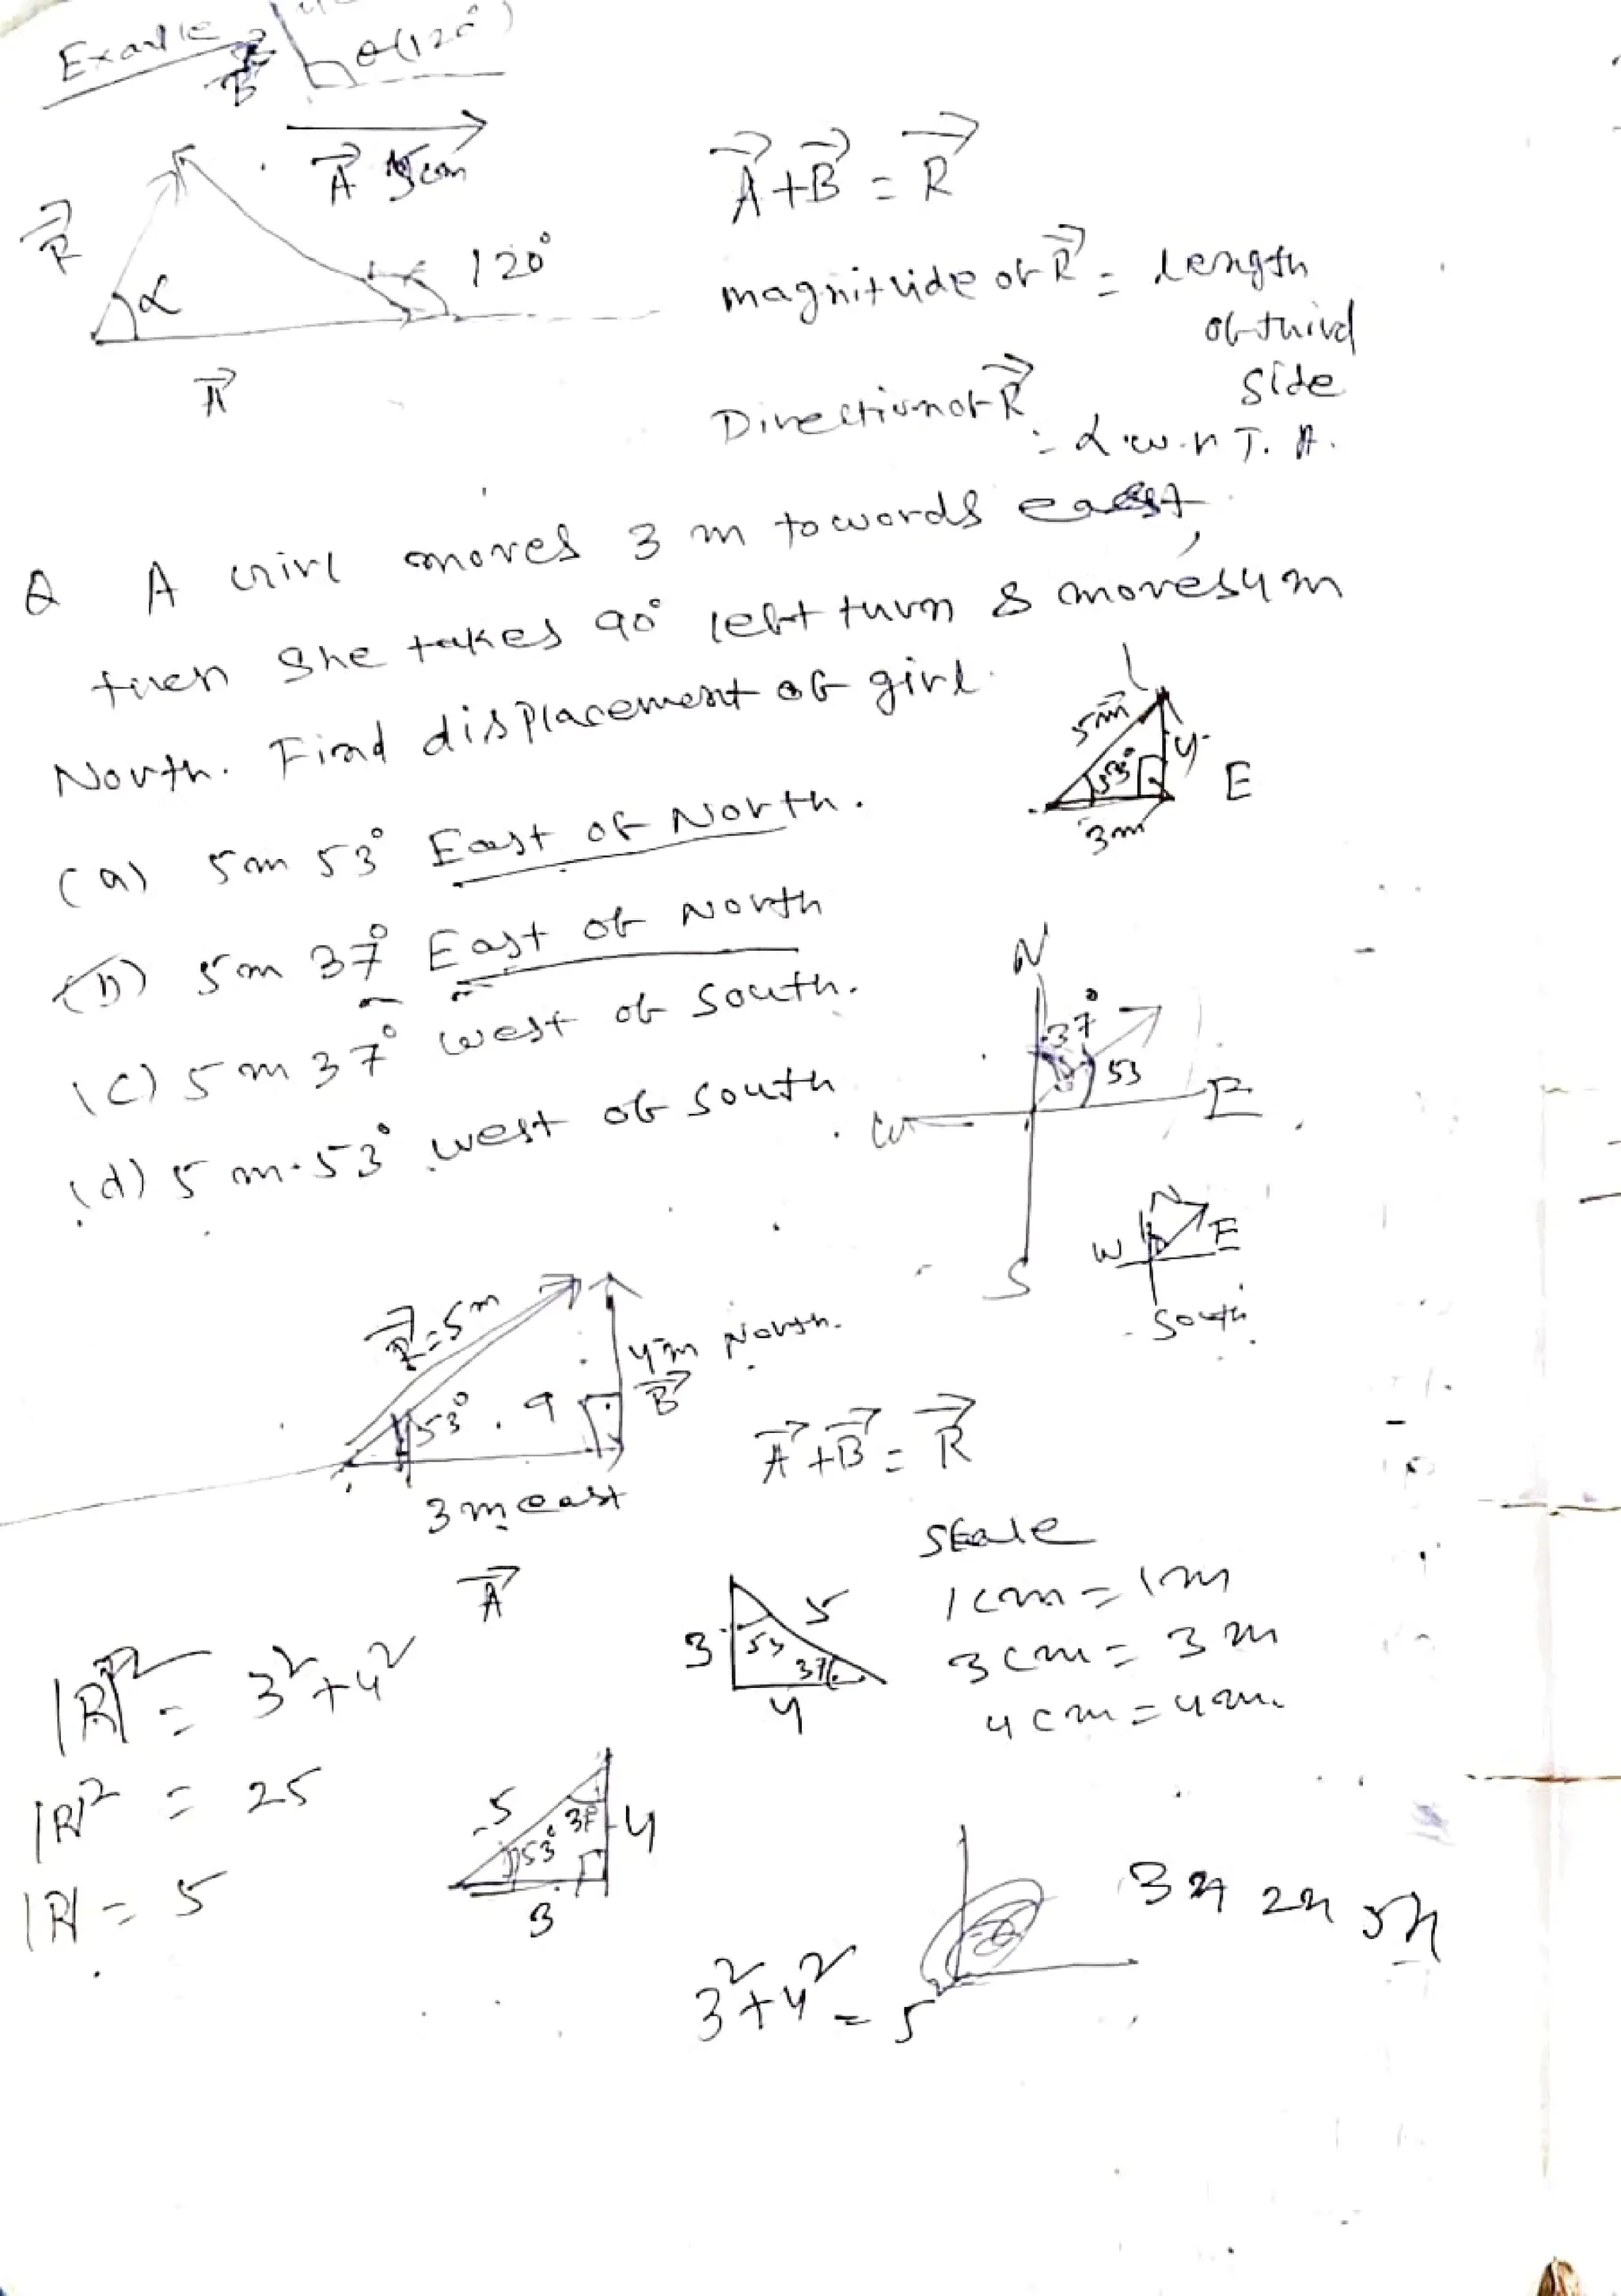 Example
B
θ(120°)
A 5cm
A + B = R
R
α
120°
A
magnitude of R = Length
of third
side
Direction of R
= α w.r T. A.
Q A Girl moves 3 m towards east,
then She takes 90° left turn & moves 4 m
North. Find displacement of girl.
5m
4
53°
E
3m
(a) 5m 53° East of North.
(b) 5m 37° East of North
(c) 5 m 37° west of south.
(d) 5 m. 53° west of south
N
37°
53
E
W
S
N
W
E
South
R = 5m
4m North.
B
53°
3 m east
A
A + B = R
Scale
1 cm = 1m
3 cm = 3 m
4 cm = 4m.
3
5
53
37
4
|R|² = 3² + 4²
|R|² = 25
|R| = 5
5
37
4
53°
3
3² + 4² = 5²